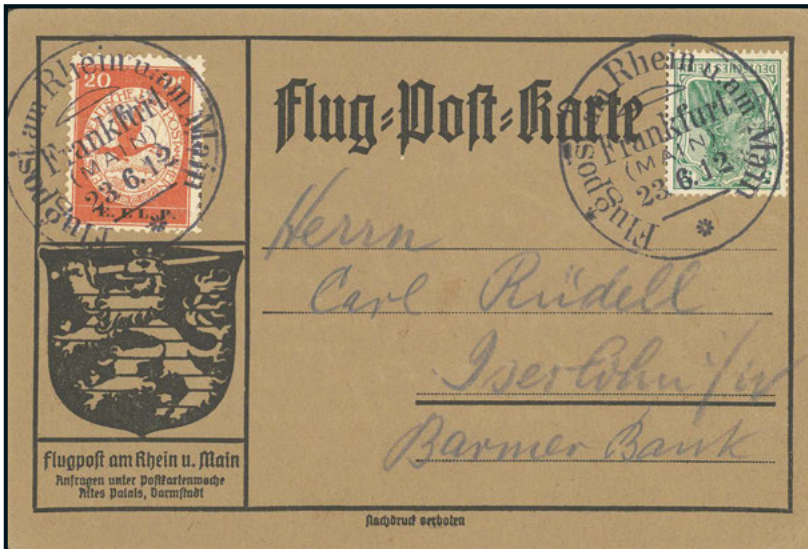 Flugpost am Rhein u. am Main
Frankfurt
(MAIN)
23.6.12
20
E.E.L.P.
Flug-Post-Karte
Flugpost am Rhein u. am Main
Frankfurt
(MAIN)
23.6.12
DEUTSCHES REICH
Herrn
Carl Rüdell
Iserlohn i/W
Barmer Bank
Flugpost am Rhein u. Main
Anfragen unter Postkartenwoche
Altes Palais, Darmstadt
Nachdruck verboten